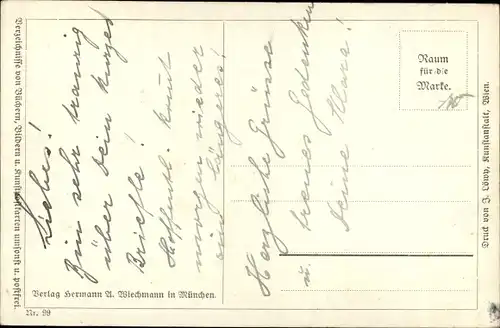 Liebes!
Bin sehr traurig
über Dein kurzes
Briefle!
Hoffentl. kommt
morgen wieder
ein längeres!
Herzliche Grüsse
u. treues Gedenken
Deine Klara!
Raum
für die
Marke.
Verzeichnisse von Büchern, Bildern u. Kunstpostkarten umsonst u. postfrei.
Verlag Hermann A. Wiechmann in München.
Nr. 99
Druck von J. Löwy, Kunstanstalt, Wien.